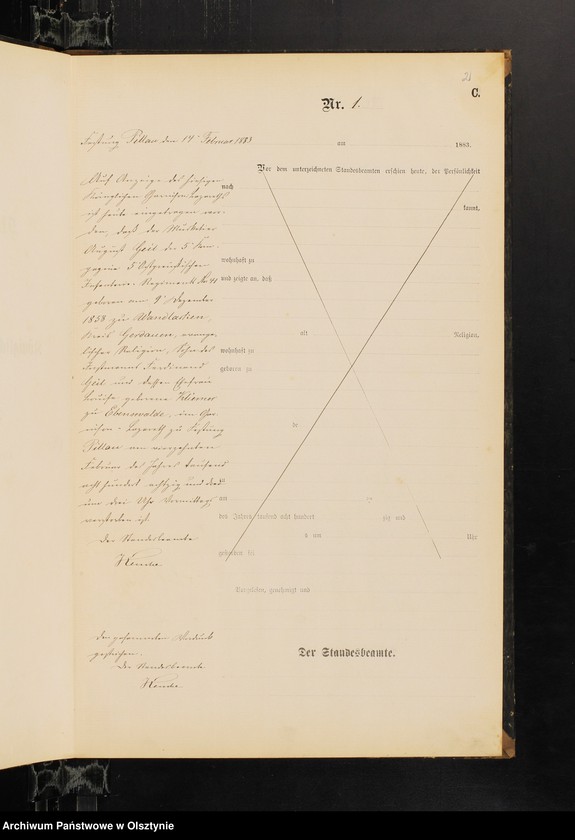 21
C.
Nr. 1.
Festung Pillau den 14ten Februar 1883
am 1883.
Vor dem unterzeichneten Standesbeamten erschien heute, der Persönlichkeit
nach
kannt,
wohnhaft zu
und zeigte an, daß
alt Religion,
wohnhaft zu
geboren zu
des Jahres tausend acht hundert
um Uhr
Vorgelesen, genehmigt und
Der Standesbeamte.
Auf Anzeige des hiesigen
Königlichen Garnison-Lazareths
ist heute eingetragen wor-
den, daß der Musketier
August Geil der 5. Kom-
pagnie 5. Ostpreußischen
Infanterie-Regiments No 41
geboren am 9. Dezember
1858 zu Wandlacken,
Kreis Gerdauen, evange-
lischer Religion, Sohn des
Ferdinand
Geil und dessen Ehefrau
Louise geborene
zu Ebenswalde, im Gar-
nison-Lazareth zu Festung
Pillau am vierzehnten
Februar des Jahres tausend
acht hundert achtzig und drei
um drei Uhr Vormittags
verstorben ist.
Der Standesbeamte
Den gesammten Vordruck
gestrichen.
Der Standesbeamte
Archiwum Państwowe w Olsztynie